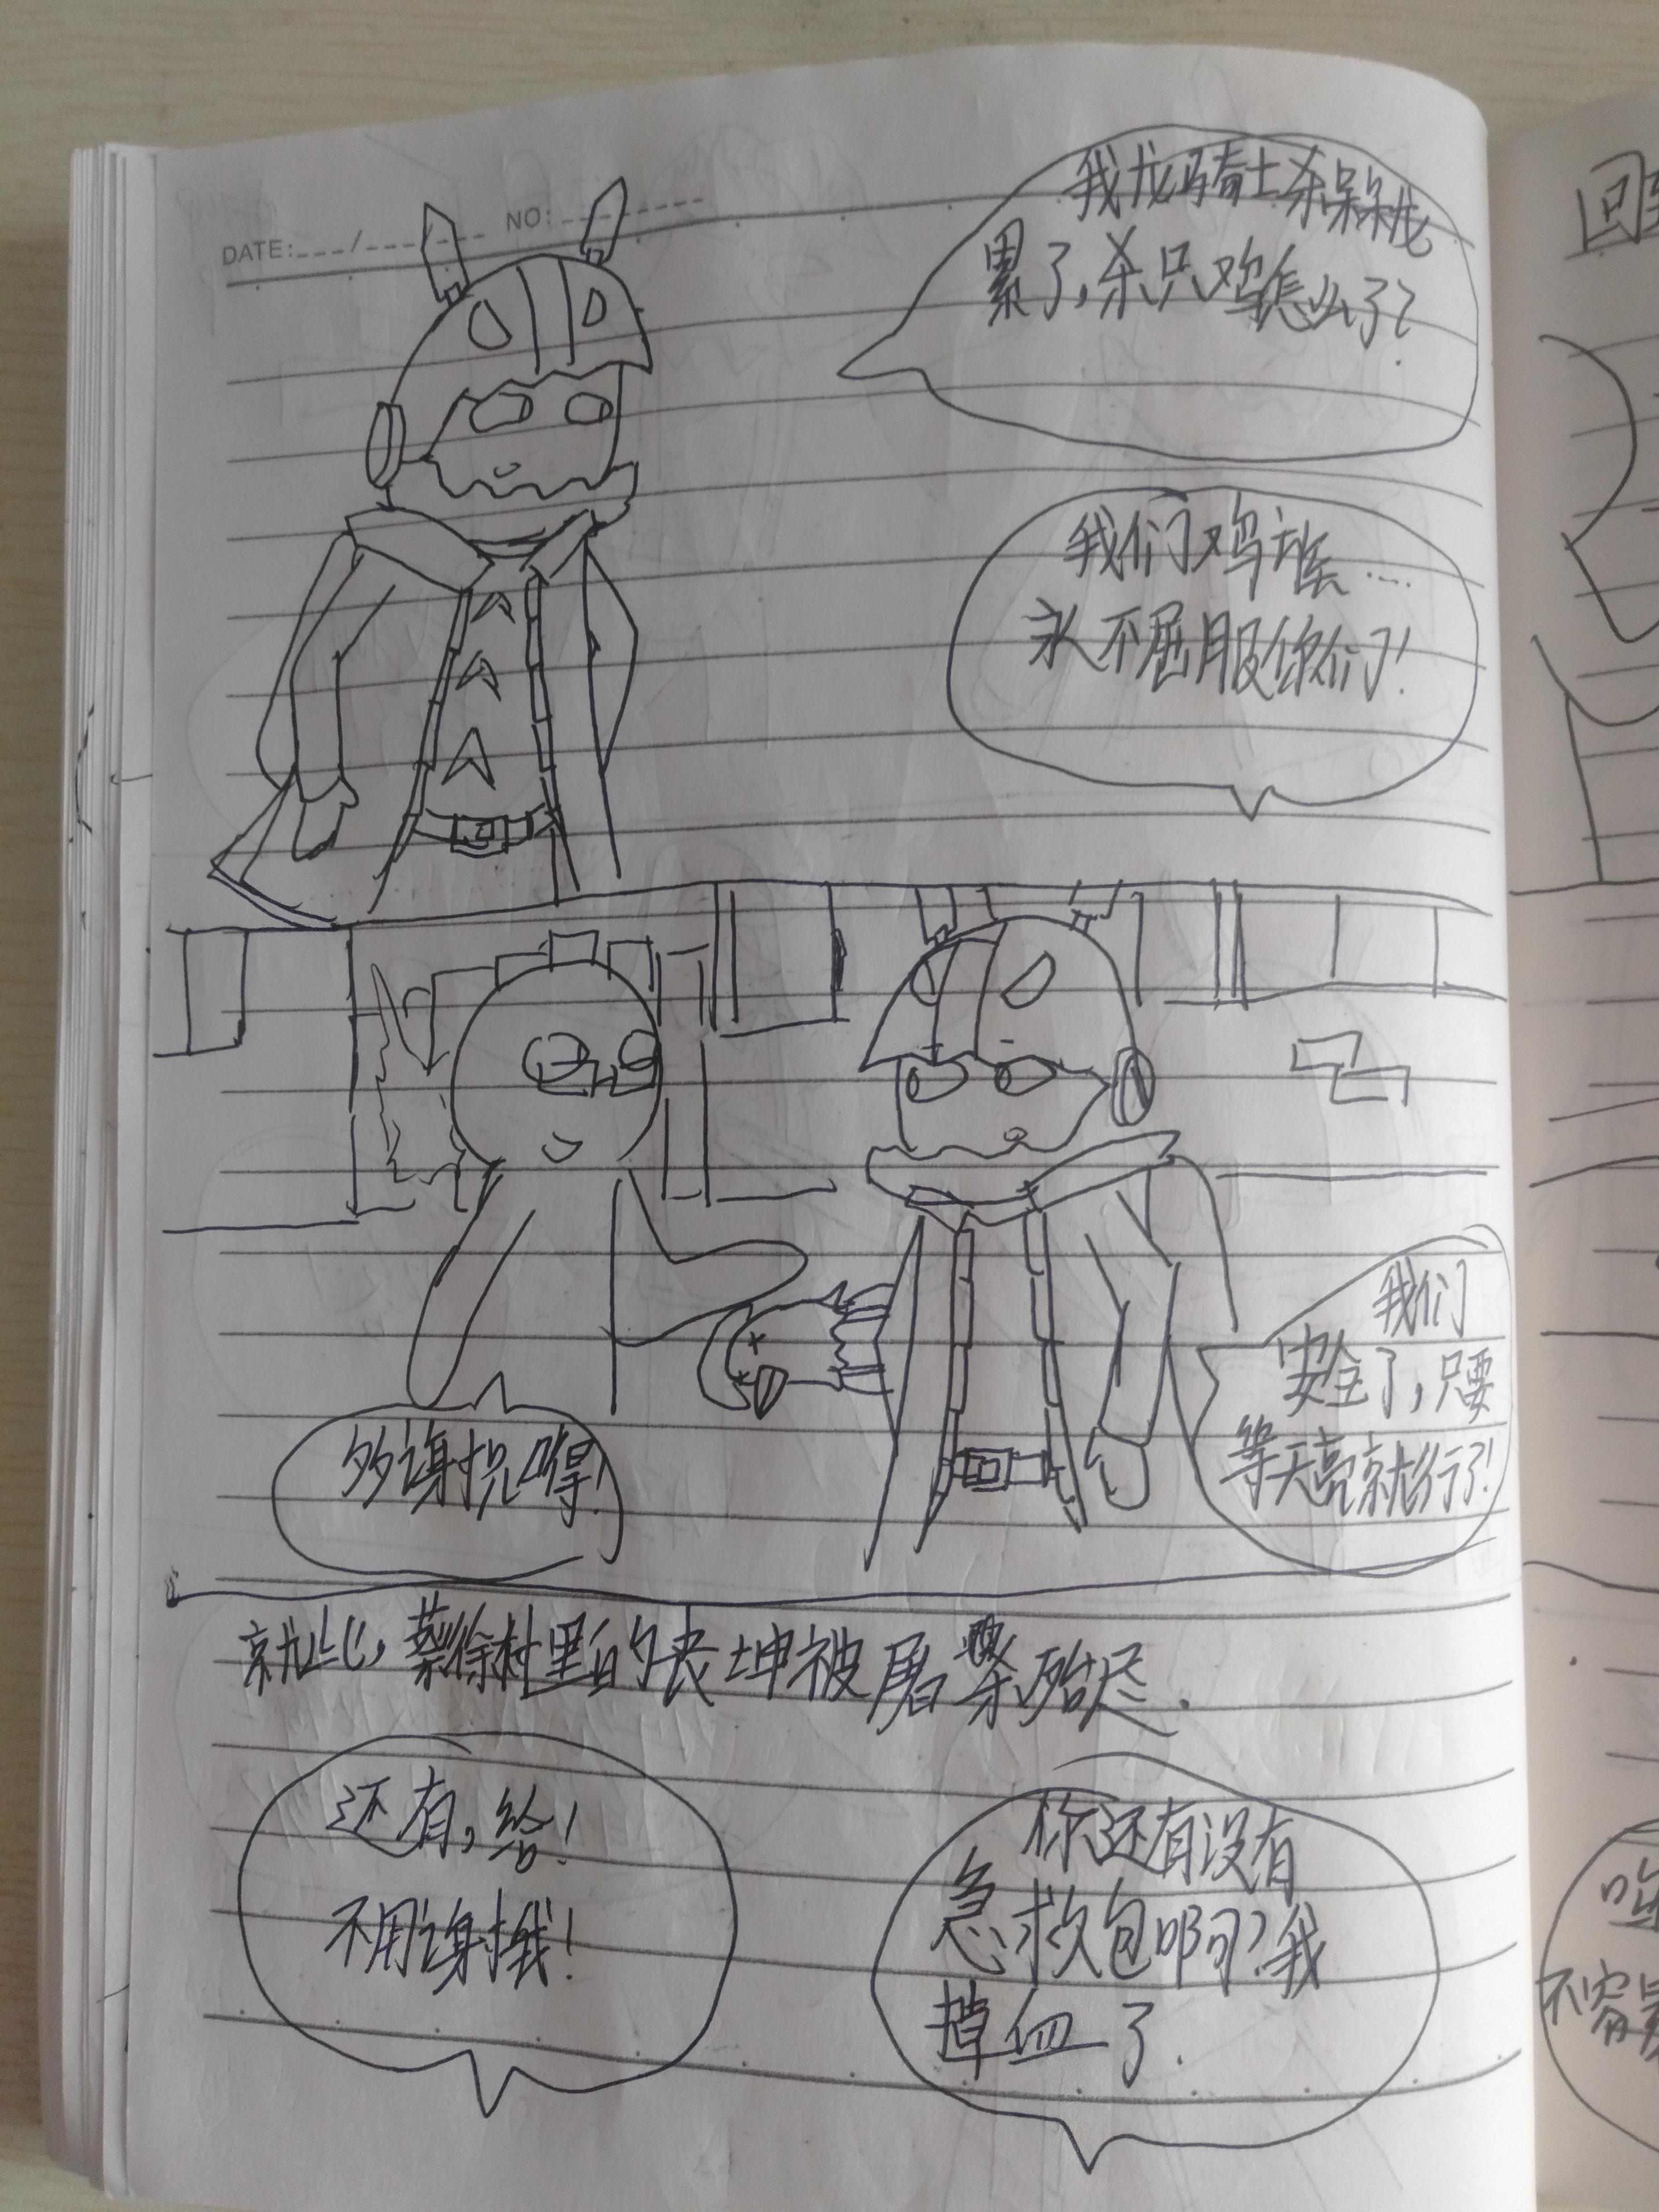 DATE: / NO:
我龙骑士杀呆呆龙
累了,杀只鸡怎么了?
我们鸡
永不屈服你们!
我们
安全了,只要
等天亮就行了!
多谢
就此,蔡徐村里的丧坤被屠杀殆尽.
还有,给!
不用谢我!
你还有没有
急救包啊?我
掉血了.
回
不容易